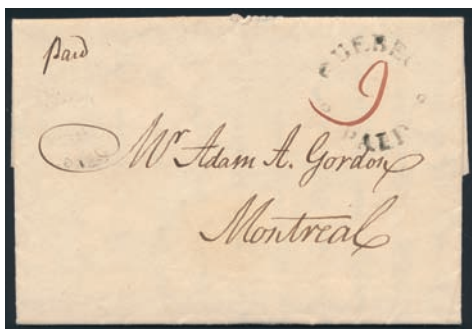 Paid
QUEBEC
9
PAID
Mr Adam A. Gordon
Montreal